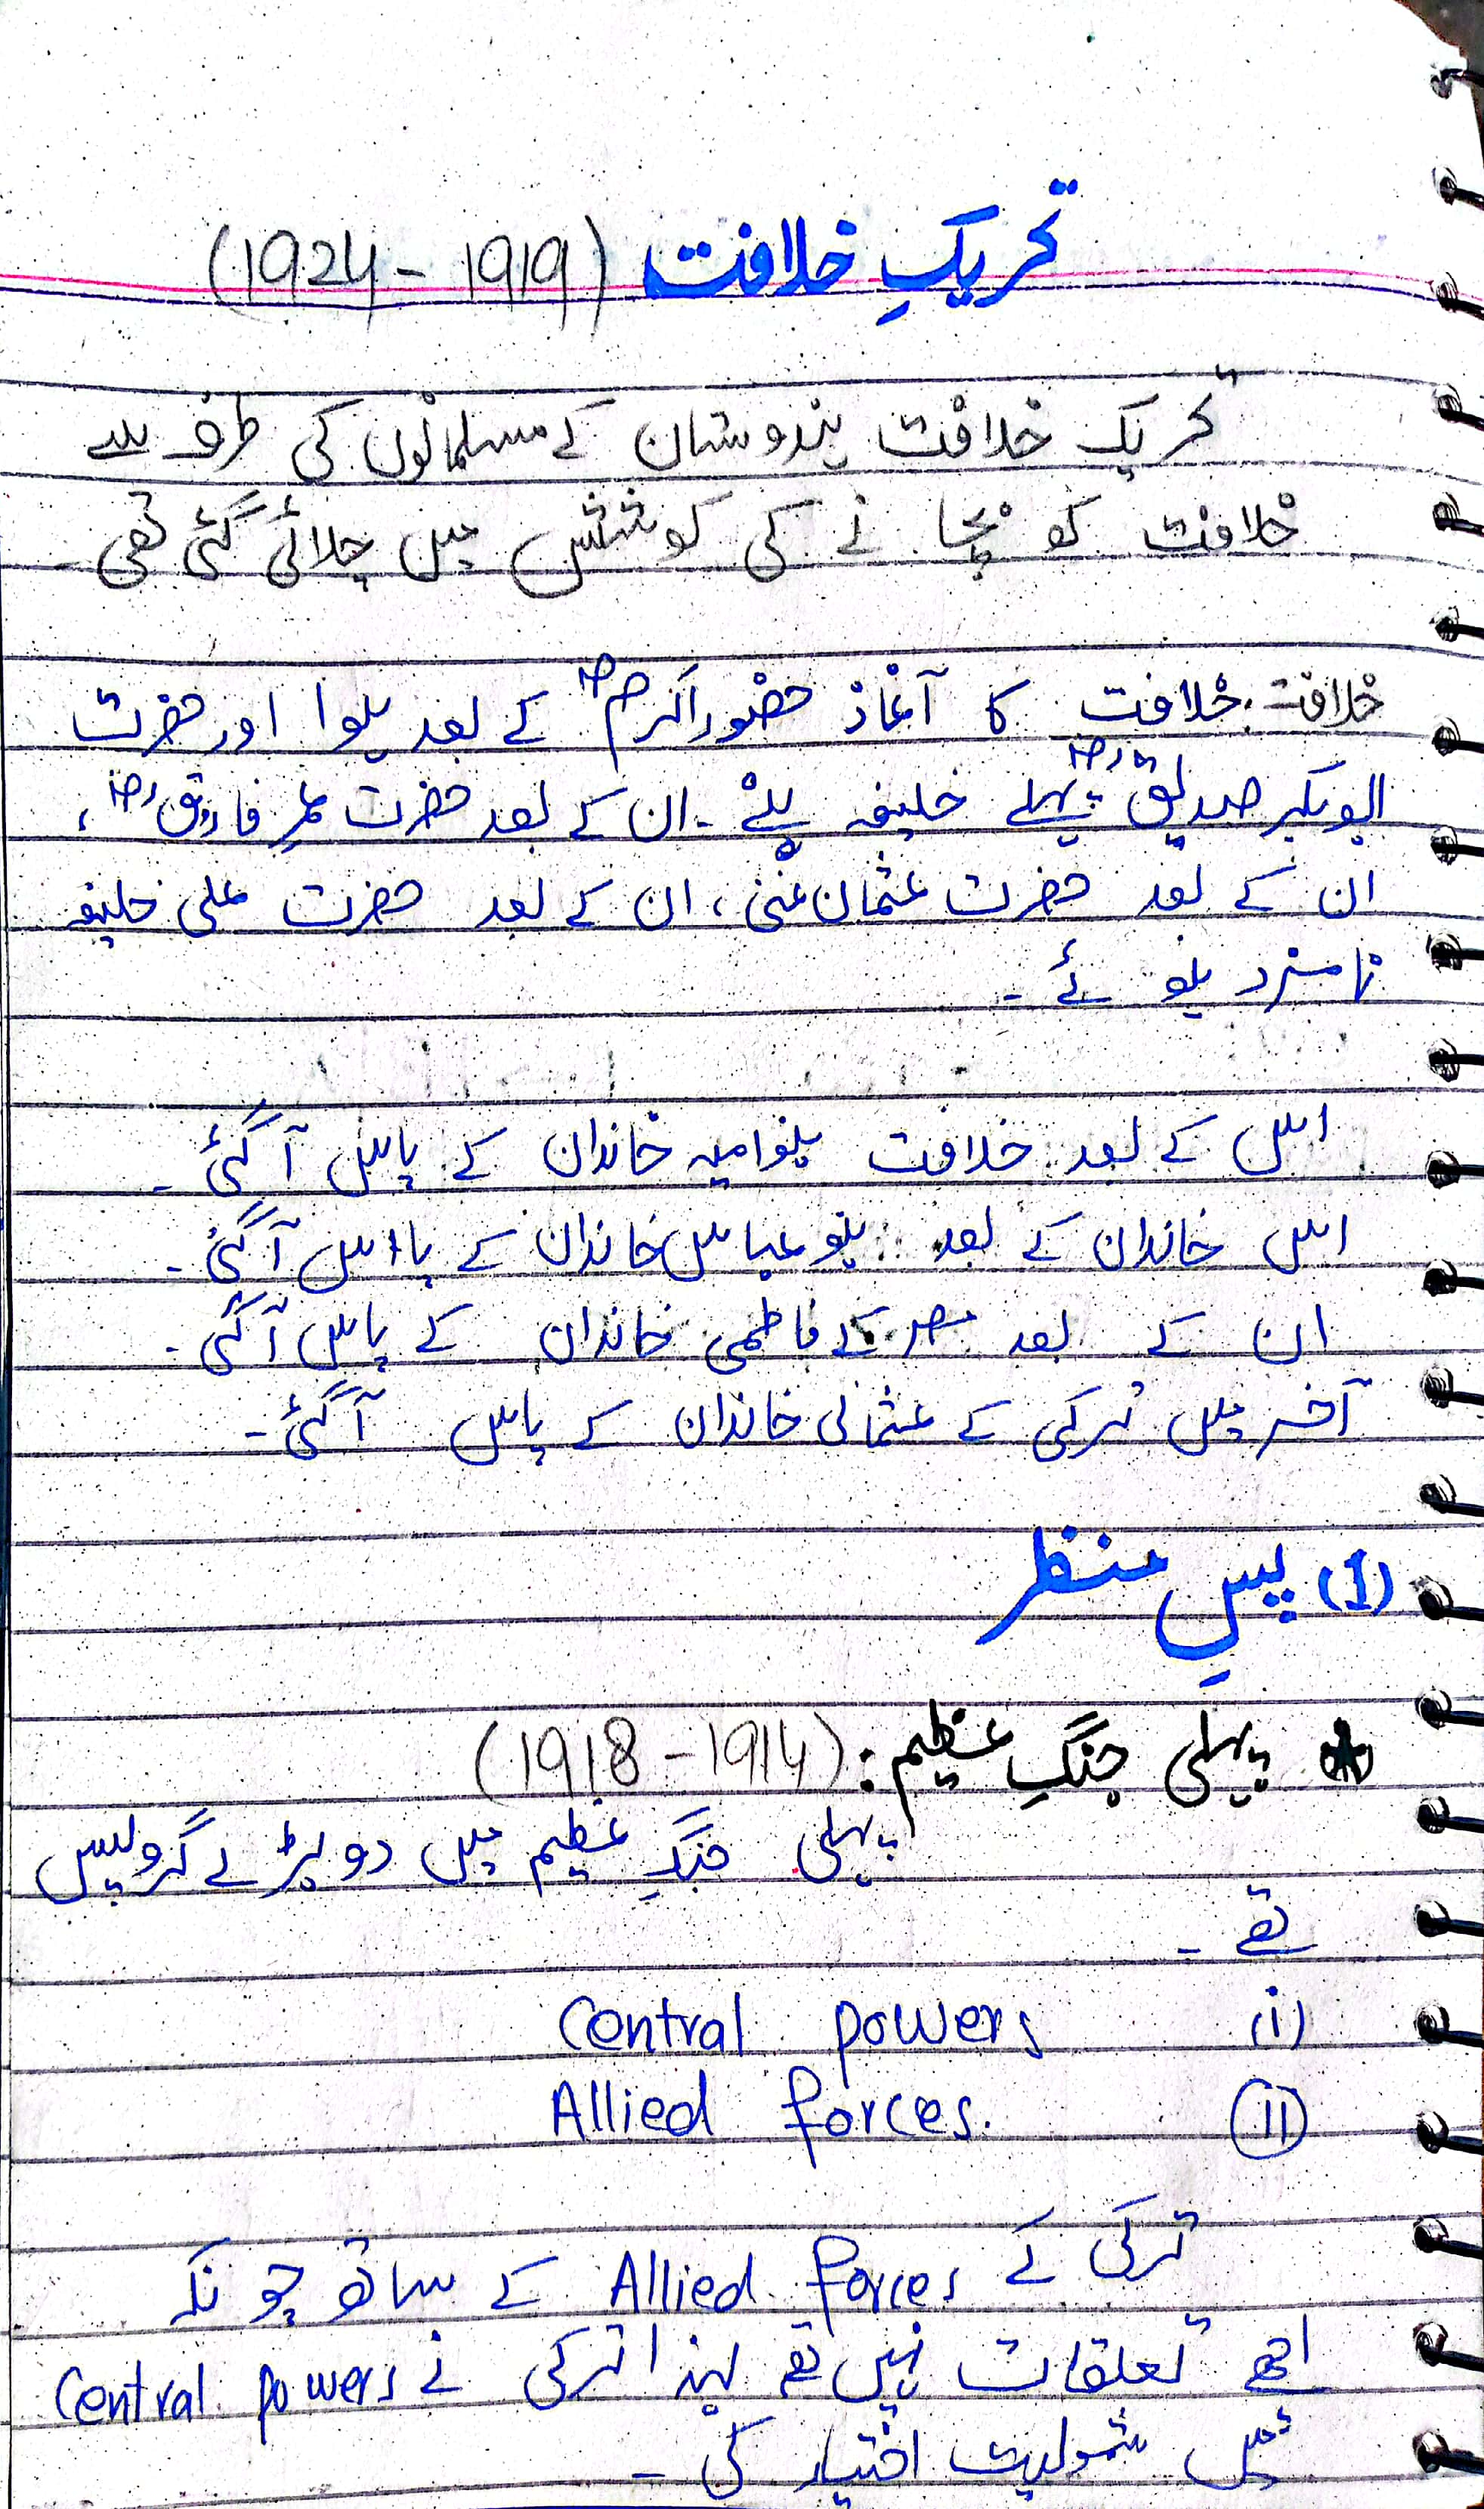 تحریکِ خلافت (1919 - 1924)
تحریک خلافت ہندوستان کے مسلمانوں کی طرف سے
خلافت کو بچانے کی کوشش میں چلائی گئی تھی۔
خلافت: خلافت کا آغاز حضور اکرم ؐ کے بعد ہوا اور حضرت
ابوبکر صدیق ؓ پہلے خلیفہ بنے۔ ان کے بعد حضرت عمرِ فاروق ؓ،
ان کے بعد حضرت عثمان غنی، ان کے بعد حضرت علی خلیفہ
نامزد ہوئے۔
اس کے بعد خلافت بنو امیہ خاندان کے پاس آگئی۔
اس خاندان کے بعد بنو عباس خاندان کے پااس آگئی۔
ان کے بعد مصر کے فاطمی خاندان کے پاس آگئی۔
آخر میں ترکی کے عثمانی خاندان کے پاس آگئی۔
(1) پسِ منظر
* پہلی جنگِ عظیم: (1914 - 1918)
پہلی جنگِ عظیم میں دو بڑے گروپس
تھے۔
(i) Central powers
(ii) Allied forces.
ترکی کے Allied forces کے ساتھ چونکہ
اچھے تعلقات نہیں تھے لہذا ترکی نے Central powers
میں شمولیت اختیار کی۔